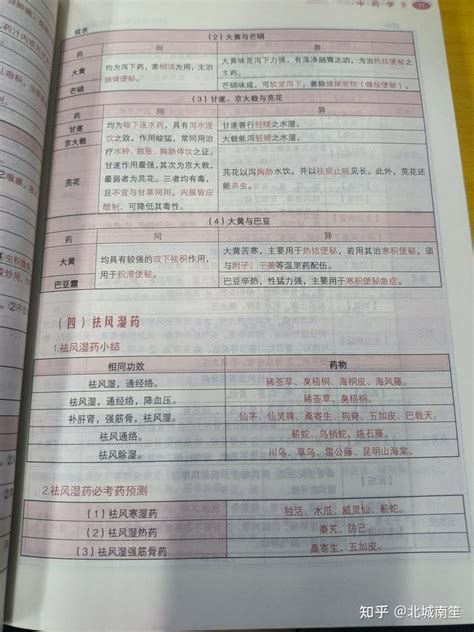 中 药 学
续表
（2）大黄与芒硝
药 同 异
大黄 均为泻下药，常相须为用，主治肠燥便秘。 大黄味苦泻下力强，有荡涤肠胃之功，为治热结便秘之主药。
芒硝 芒硝味咸，可软坚泻下，善除燥屎坚结
（3）甘遂、京大戟与芫花
药 同 异
甘遂 甘遂善行经隧之水湿。
京大戟 大戟能泻脏腑之水湿。
芫花 芫花以泻胸胁水饮，并以祛痰止咳见长。此外，芫花还能杀虫。
均为峻下逐水药，具有泻水逐饮之效，作用峻猛，常同用治疗水肿、鼓胀、胸胁停饮之证。甘遂作用最强，其次为京大戟，最弱者为芫花。三者均有毒，且不宜与甘草同用。内服皆应醋制，可降低其毒性。
（4）大黄与巴豆
药 同 异
大黄 均具有较强的攻下去积作用，用于积滞便秘。 大黄苦寒，主要用于热结便秘，若用其治寒积便秘，须与附子、干姜等温里药配伍。
巴豆霜 巴豆辛热，性猛力强，主要用于寒积便秘急症。
（四）祛风湿药
1.祛风湿药小结
相同功效 药物
祛风湿，通经络。 豨莶草、臭梧桐、海桐皮、海风藤。
祛风湿，通经络，降血压。 豨莶草、臭梧桐。
补肝肾，强筋骨，祛风湿。 仙茅、仙灵脾、桑寄生、狗脊、五加皮、巴戟天。
祛风通络。 蕲蛇、乌梢蛇、络石藤。
祛风除湿。 川乌、草乌、雷公藤、昆明山海棠。
2.祛风湿药必考药预测
（1）祛风寒湿药 独活、木瓜、威灵仙、蕲蛇。
（2）祛风湿热药 秦艽、防己。
（3）祛风湿强筋骨药 桑寄生、五加皮。
知乎 @北城南笙